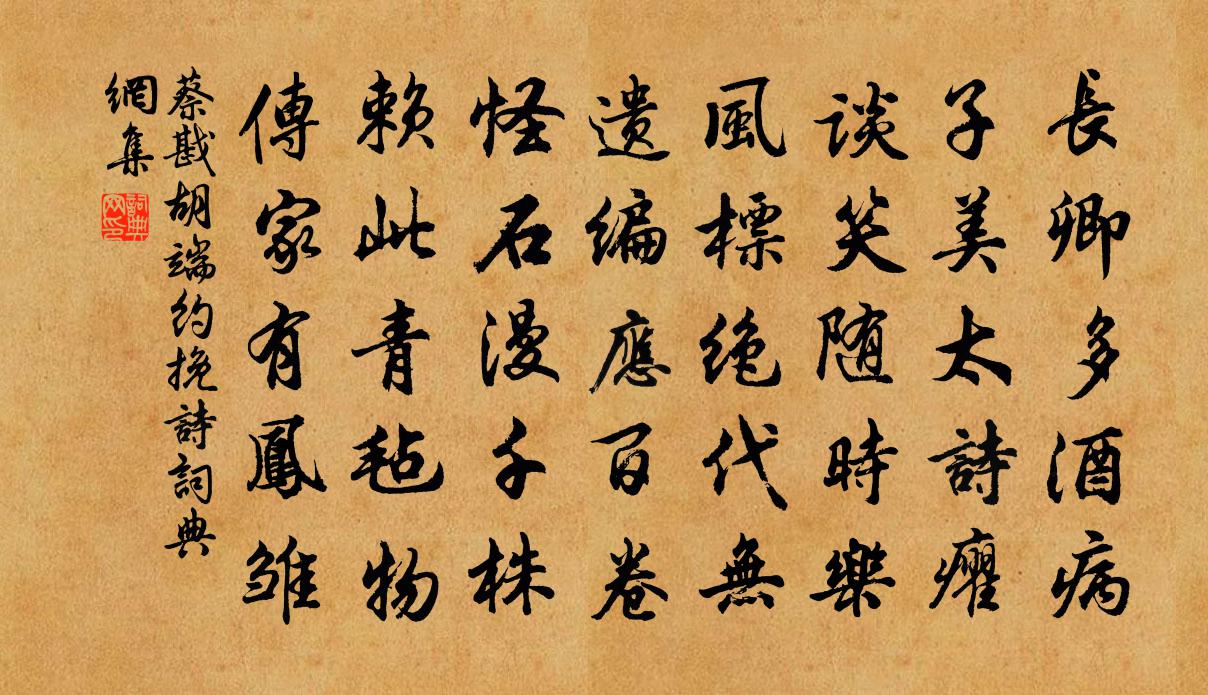 長卿多酒病
子美太詩癯
談笑随時樂
風標絶代無
遺編應百卷
怪石漫千株
賴此青毡物
傳家有鳳雏
蔡戡胡端約挽詩詞典
網集
詞典
网印